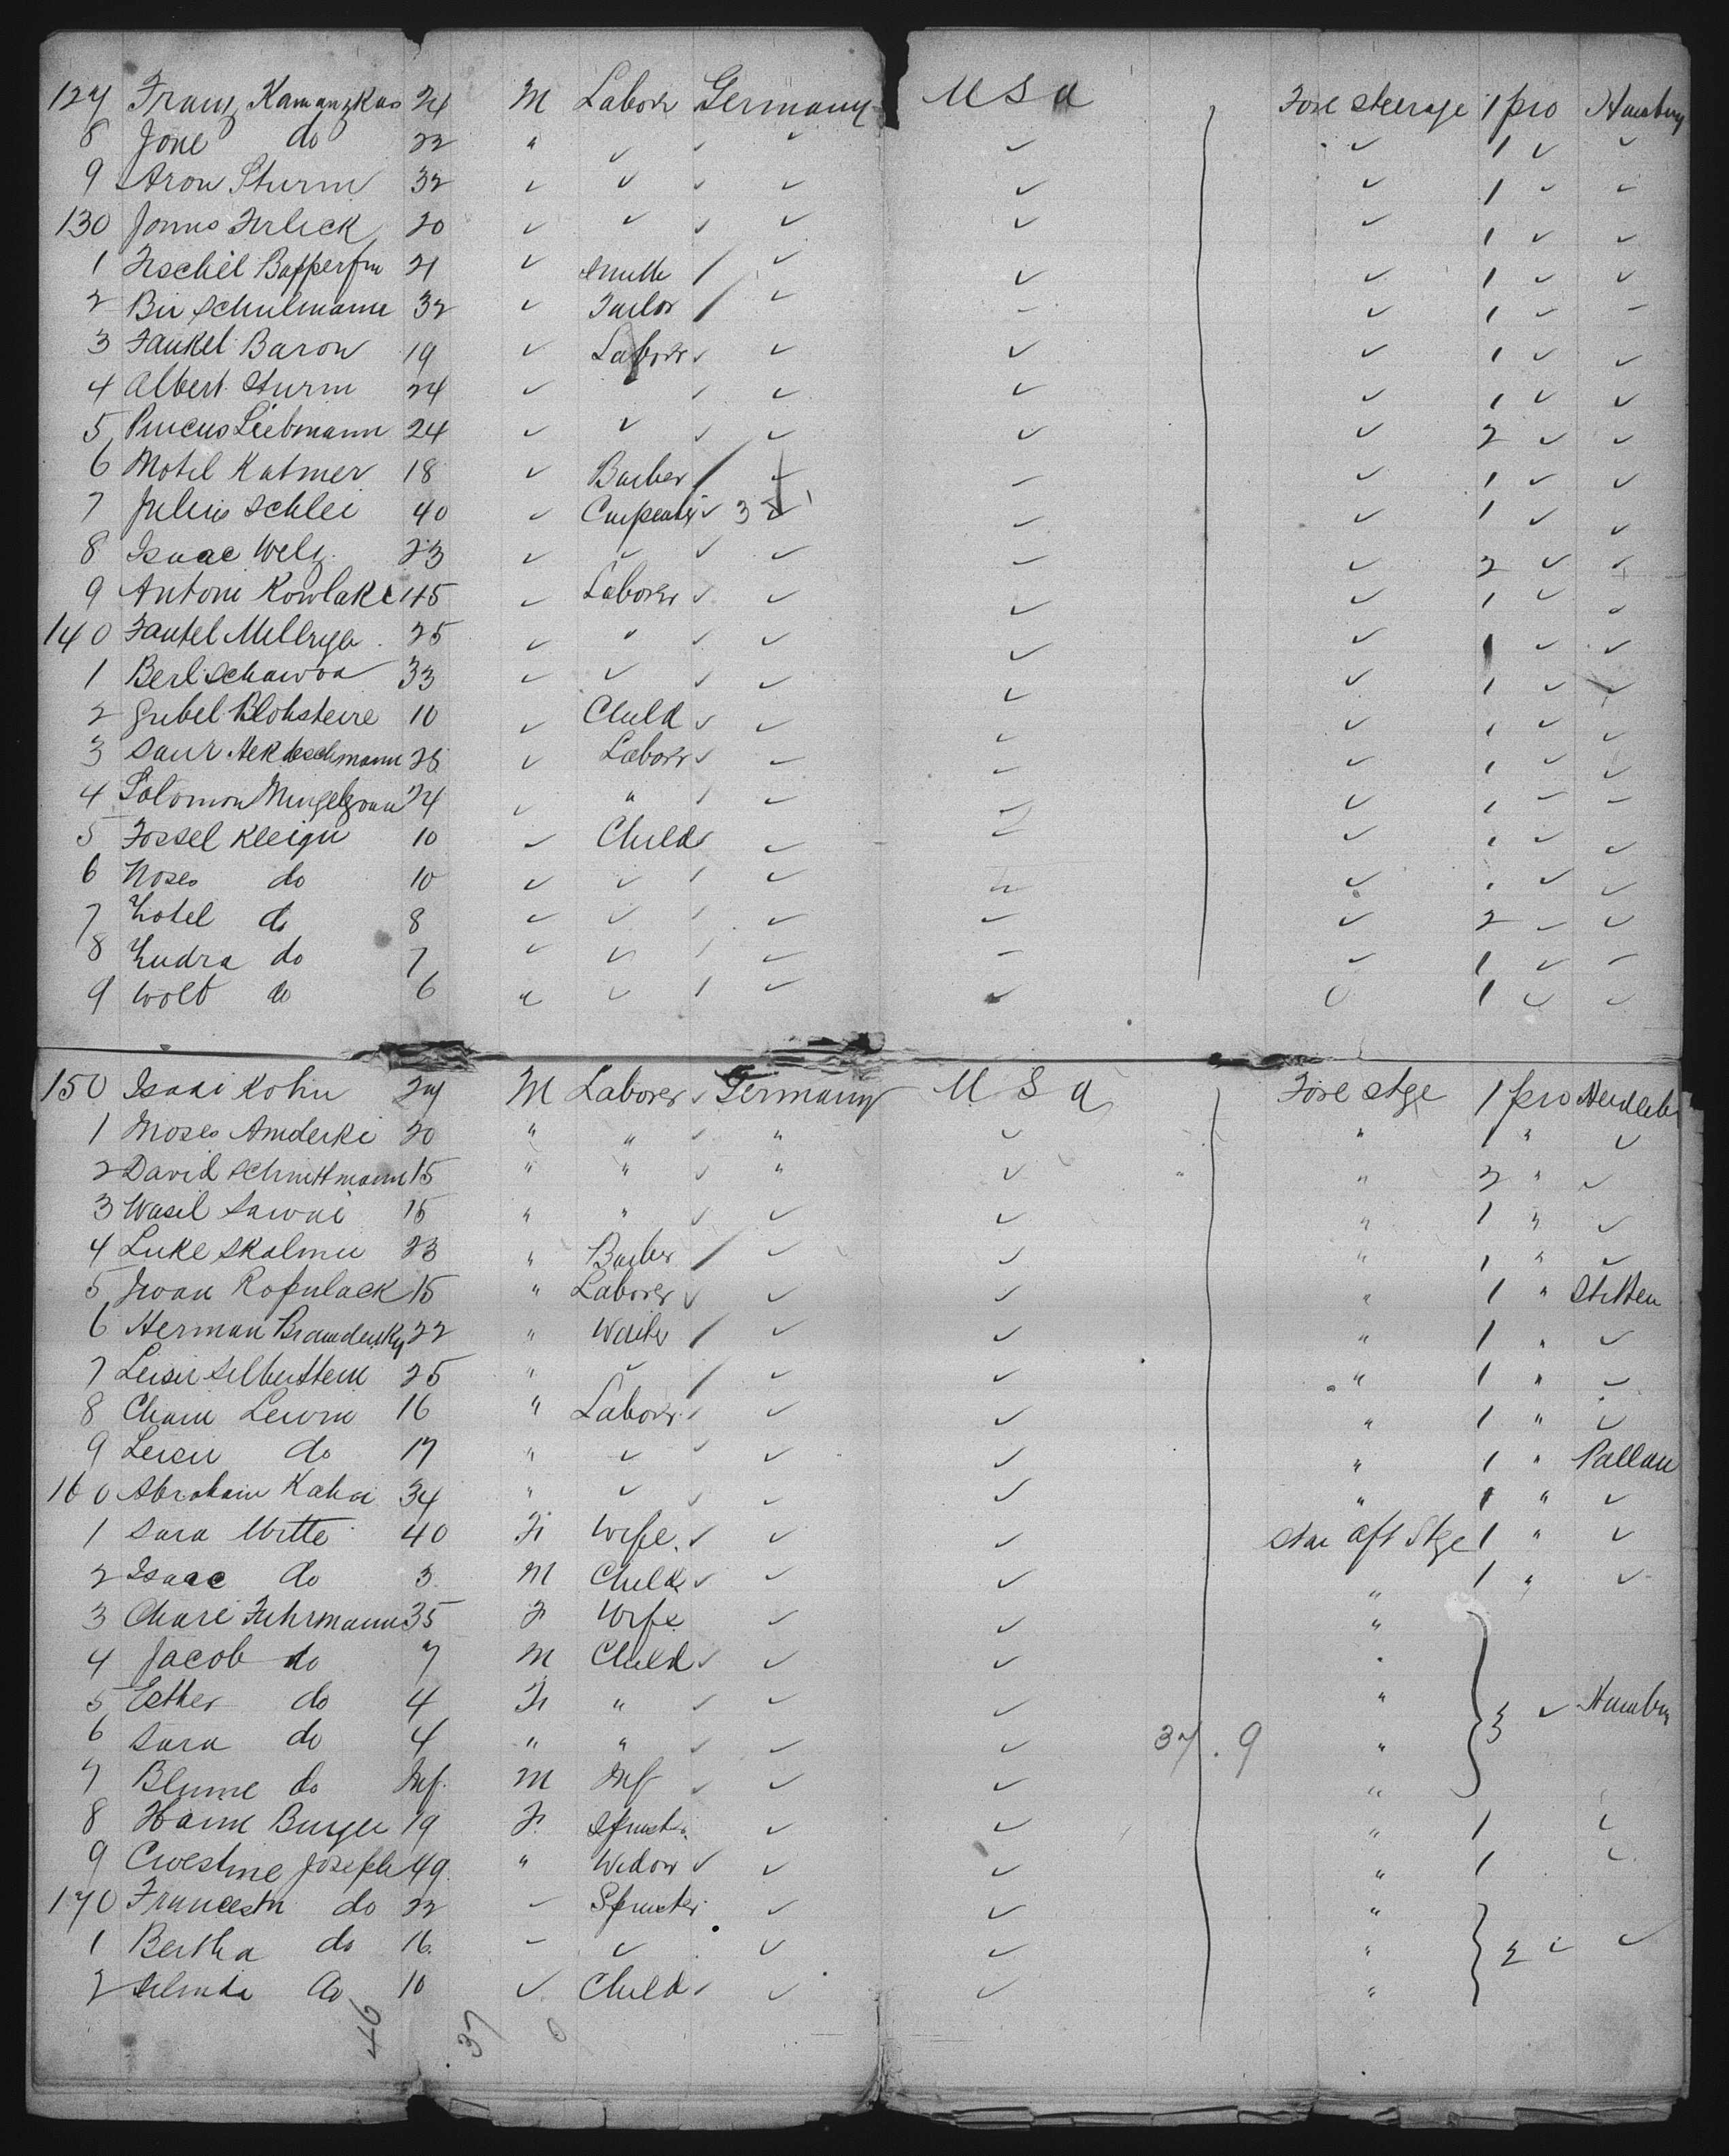 127 Franz Kamanzkas 24 M Laborer Germany U S A Fore steerage 1 pro Hamburg
8 Jone do 22 " ✓ ✓ ✓ ✓ ✓ 1 ✓ ✓
9 Aron Sturm 32 ✓ ✓ ✓ ✓ ✓ ✓ 1 ✓ ✓
130 Jonns 20 ✓ ✓ ✓ ✓ ✓ ✓ 1 ✓ ✓
1 21 ✓ Smith / ✓ ✓ ✓ 1 ✓ ✓
2 Bir Schulmann 32 ✓ Tailor / ✓ ✓ ✓ 1 ✓ ✓
3 Jankel Baron 19 ✓ Laborer ✓ ✓ ✓ ✓ 1 ✓ ✓
4 Albert Sturm 24 ✓ ✓ ✓ ✓ ✓ 1 ✓ ✓
5 Pincus Liebmann 24 ✓ ✓ ✓ ✓ ✓ ✓ 2 ✓ ✓
6 Motel Katmer 18 ✓ Barber / ✓ ✓ ✓ 1 ✓ ✓
7 Julius Schlei 40 ✓ Carpenter ✓ 3 ✓ ✓ ✓ 1 ✓ ✓
8 Isaac Welz 23 ✓ ✓ ✓ ✓ ✓ ✓ 2 ✓ ✓
9 Antoni Kowlake 45 ✓ Laborer ✓ ✓ ✓ ✓ 1 ✓ ✓
140 25 ✓ " ✓ ✓ ✓ ✓ 1 ✓ ✓
1 Berl Schawoa 33 ✓ ✓ ✓ ✓ ✓ ✓ 1 ✓ ✓
2 Gubel Blohsteire 10 ✓ Child ✓ ✓ ✓ ✓ 1 ✓ ✓
3 Laborer ✓ ✓ ✓ ✓ 1 ✓ ✓
4 Solomon 24 ✓ " / ✓ ✓ ✓ 1 ✓ ✓
5 Jossel Kleign 10 ✓ Child ✓ ✓ ✓ 1 ✓ ✓
6 Moses do 10 ✓ ✓ / ✓ ✓ ✓ 1 ✓ ✓
7 do 8 ✓ ✓ / ✓ ✓ ✓ 2 ✓ ✓
8 do 7 ✓ ✓ / ✓ ✓ ✓ 1 ✓ ✓
9 Wolb do 6 " ✓ / ✓ ✓ ✓ 1 ✓ ✓
150 Isaai Kohn 24 M Laborer ✓ Germany U S A Fore stge 1 pro
1 Moses Amderki 20 " " ✓ " ✓ " 1 " ✓
2 David Schnittmann 15 " " ✓ " ✓ " 2 " ✓
3 Wasil Sawai 15 " " ✓ ✓ ✓ " 1 " ✓
4 Luke Skalmii 23 " Barber / ✓ ✓ " 1 " ✓
5 Iwan Ropulack 15 " Laborer ✓ ✓ ✓ " 1 " Stetten
6 Herman 22 " Waiter / ✓ ✓ " 1 " ✓
7 Leiser Silberstein 25 " ✓ / ✓ ✓ " 1 " ✓
8 Chaim Lewin 16 " Laborer ✓ ✓ ✓ " 1 " ✓
9 Leiser do 17 " ✓ ✓ ✓ ✓ " 1 " Pallau
160 Abraham Kahn 34 " ✓ ✓ ✓ ✓ " 1 " ✓
1 Sara Witte 40 F Wife ✓ ✓ ✓ Star aft Stge 1 " ✓
2 Isaac do 3 M Child ✓ ✓ ✓ " 1 " ✓
3 Chare Fuhrmann 35 F Wife ✓ ✓ "
4 Jacob do 7 M Child ✓ ✓ ✓ "
5 Esther do 4 F " ✓ ✓ ✓ " 3 ✓ Hamburg
6 Sara do 4 " " ✓ ✓ ✓ 37 . 9 "
7 Blume do Inf. M Inf ✓ ✓ ✓ "
8 Hann Burger 19 F Spinster ✓ ✓ " 1 ✓
9 Joseph 49 " Widow ✓ ✓ ✓ " 1 ✓
170 do 22 ✓ Spinster ✓ ✓ "
1 Bertha do 16 ✓ ✓ ✓ ✓ " 2 ✓ ✓
2 do 10 ✓ Child ✓ ✓ ✓ "
46
37